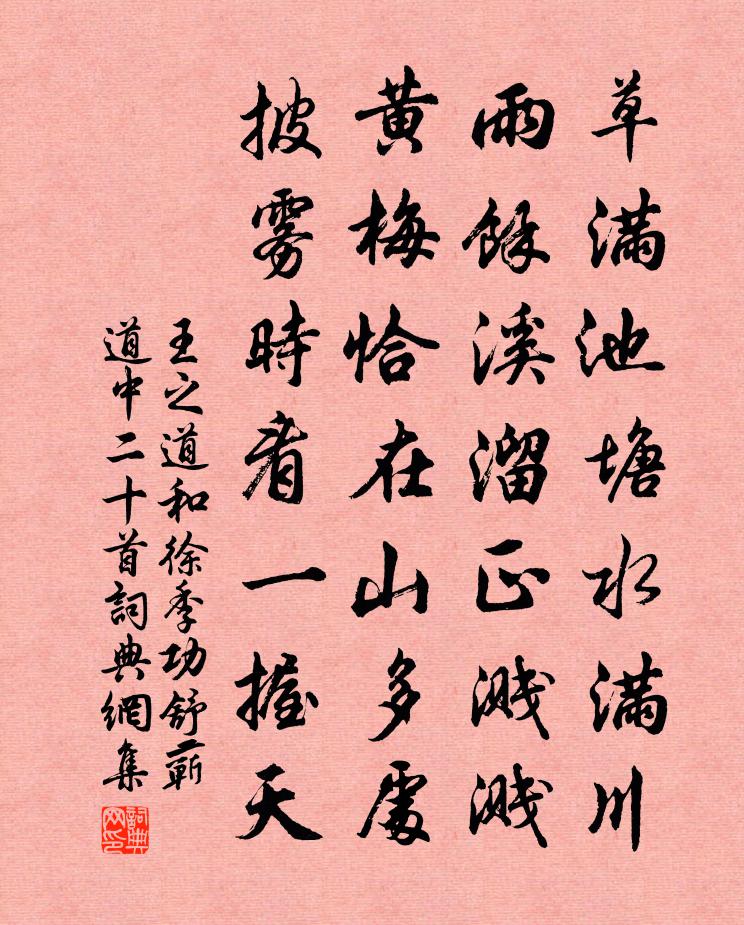 草滿池塘水滿川
雨餘溪溜正濺濺
黃梅恰在山多處
披雾時看一握天
王之道和徐季功舒蘄
道中二十首詞典網集
詞典
网印